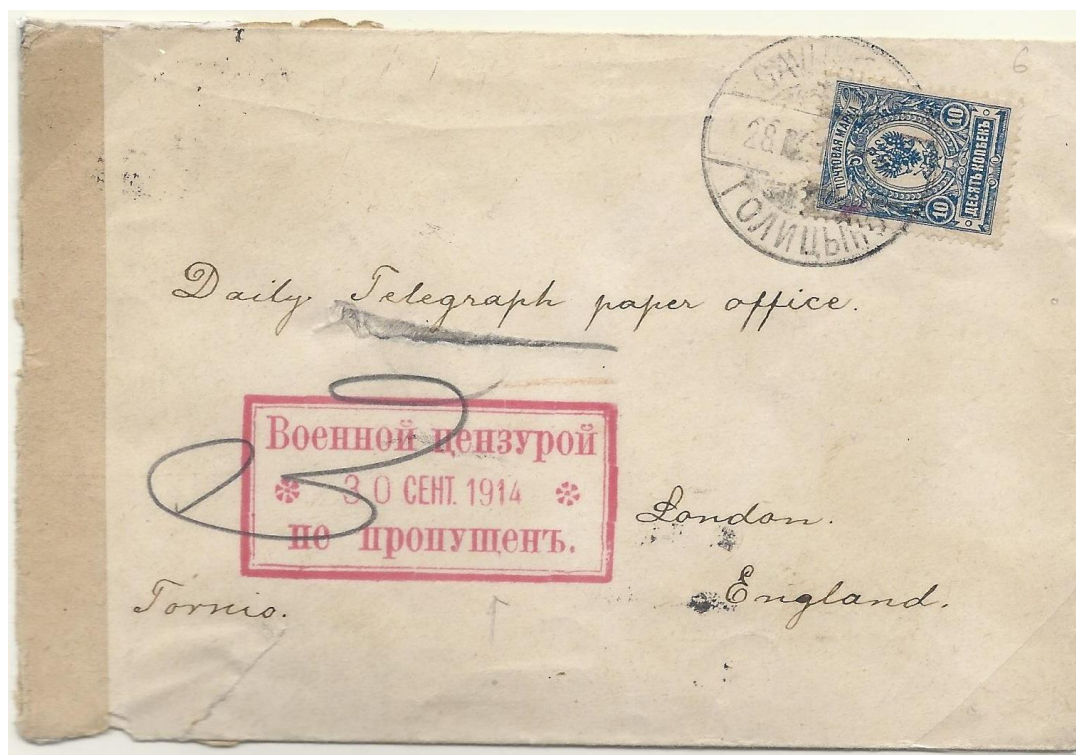 6
28.IX
ПОЧТОВАЯ МАРКА
10
10
ДЕСЯТЬ КОПѢЕКЪ
Daily Telegraph paper office.
Военной цензурой
30 СЕНТ. 1914
не пропущенъ.
London.
England.
Tornio.